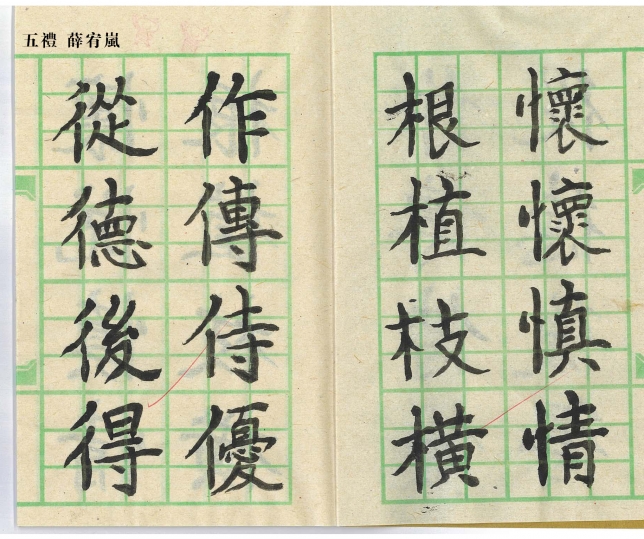 五禮 薛宥嵐
懷懷慎情
根植枝橫
作傳侍優
從德後得